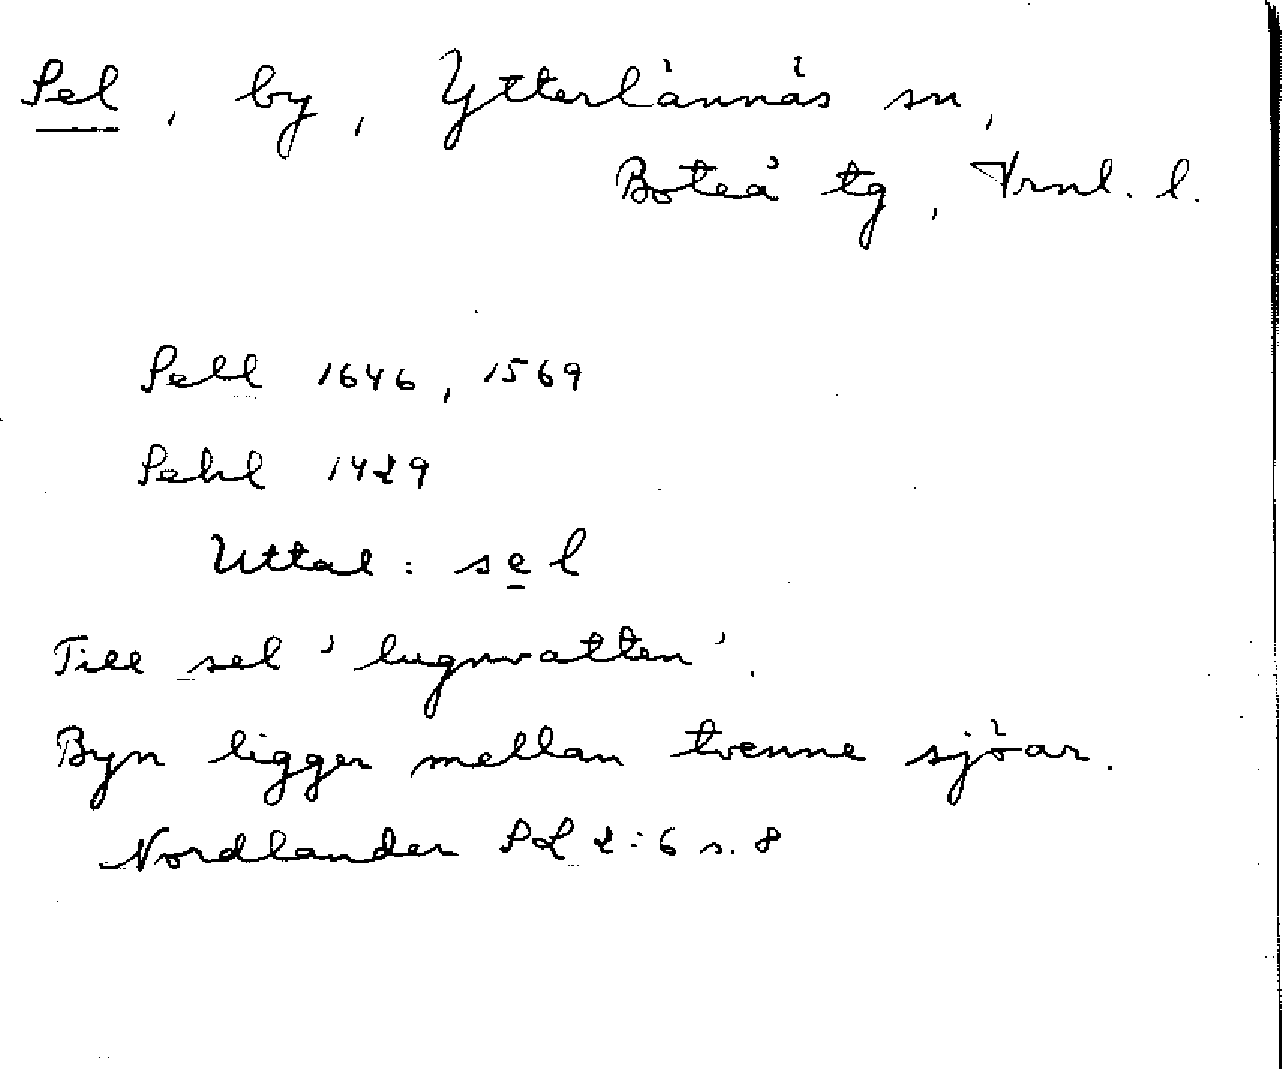 Sel, by, Ytterlännäs sn,
Boteå tg, Vrnl. l.
Sell 1646, 1569
Sehl 1429
Uttal: sel
Till sel 'lugnvatten'.
Byn ligger mellan tvenne sjöar.
Nordlander SL 2:6 s. 8